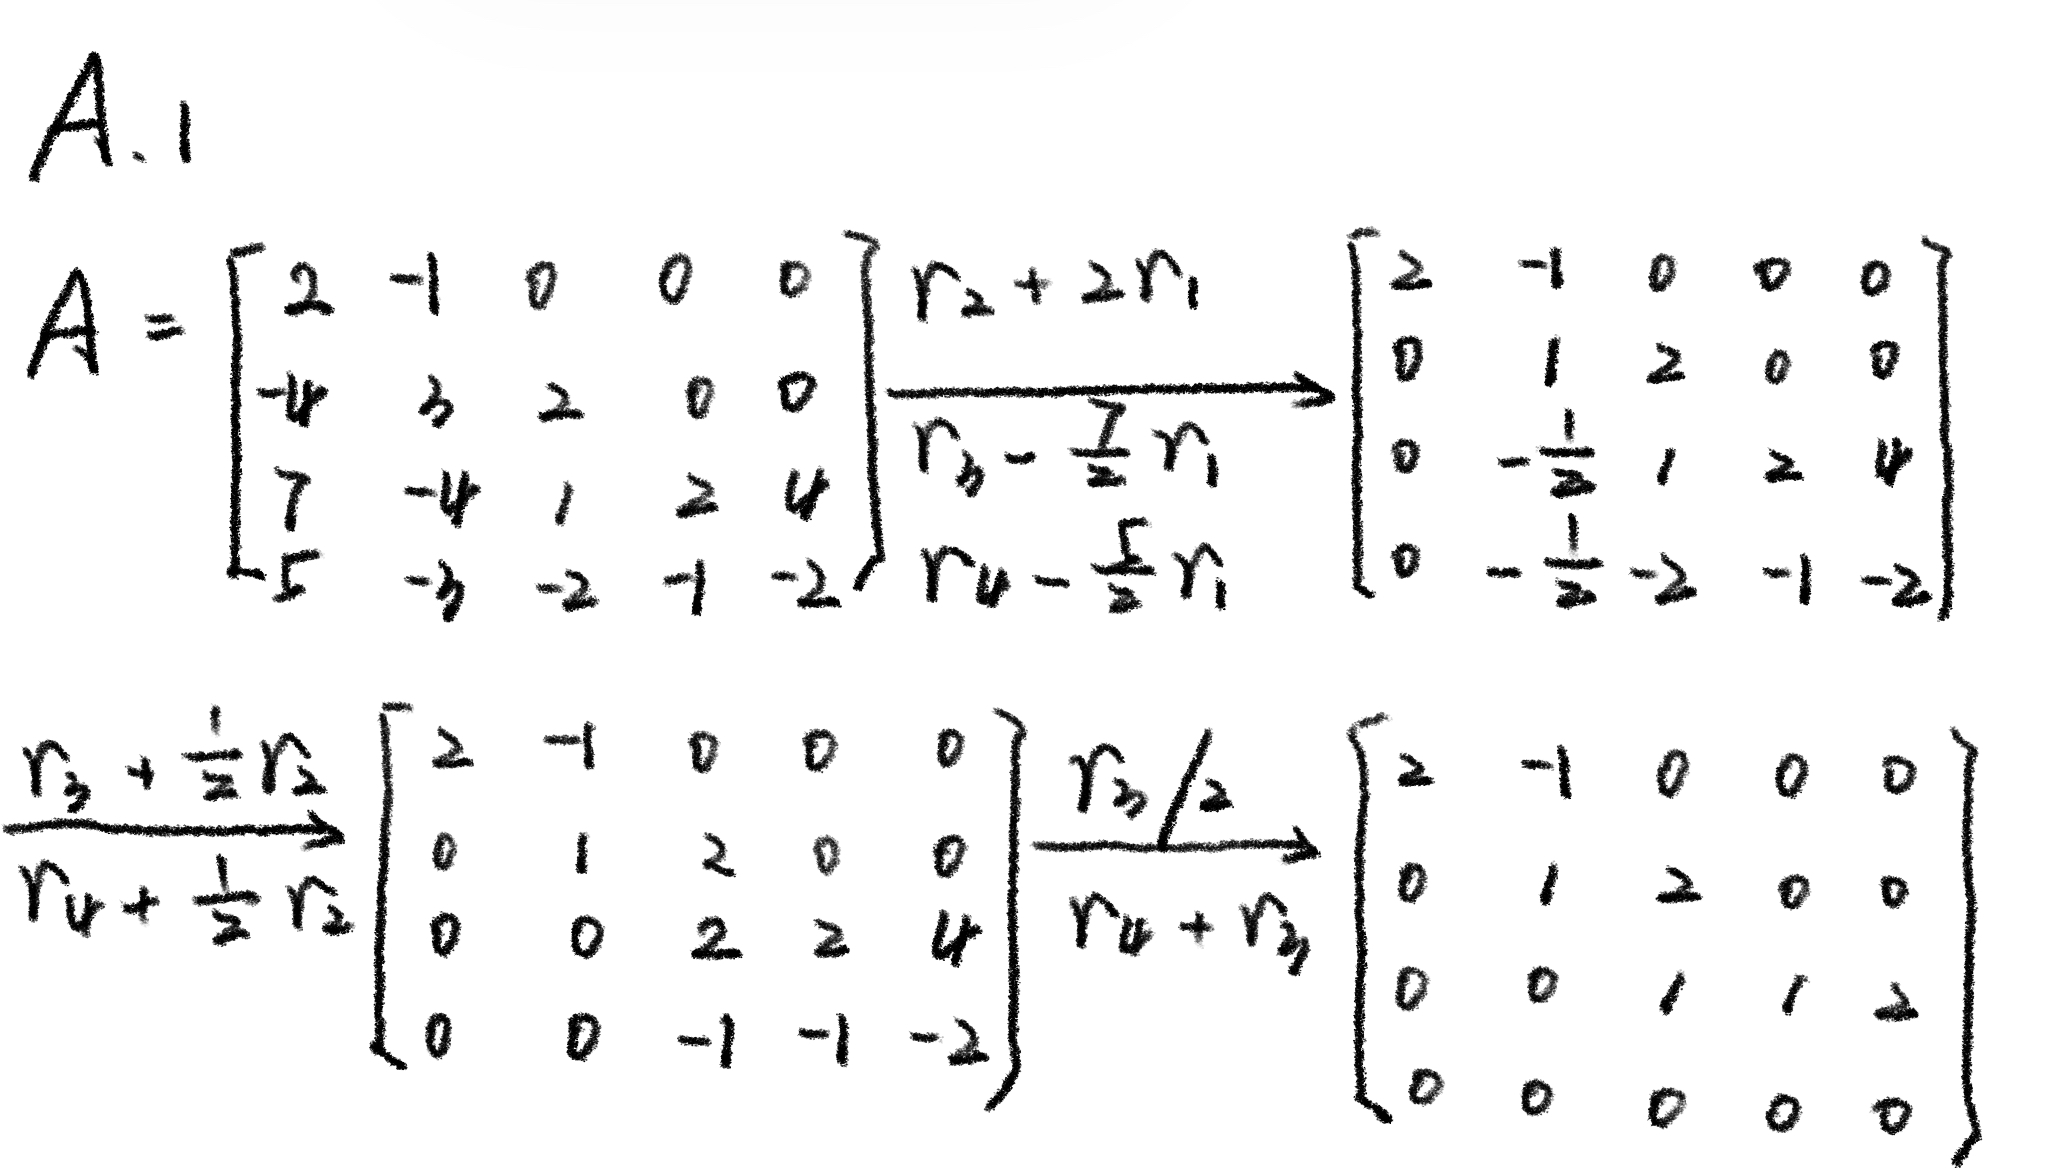 A.1
A = [2 -1 0 0 0; -4 3 2 0 0; 7 -4 1 2 4; 5 -3 -2 -1 -2] r₂ + 2r₁ → r₃ - 7/2 r₁ r₄ - 5/2 r₁ [2 -1 0 0 0; 0 1 2 0 0; 0 -1/2 1 2 4; 0 -1/2 -2 -1 -2]
r₃ + 1/2 r₂ → r₄ + 1/2 r₂ [2 -1 0 0 0; 0 1 2 0 0; 0 0 2 2 4; 0 0 -1 -1 -2] r₃/2 → r₄ + r₃ [2 -1 0 0 0; 0 1 2 0 0; 0 0 1 1 2; 0 0 0 0 0]